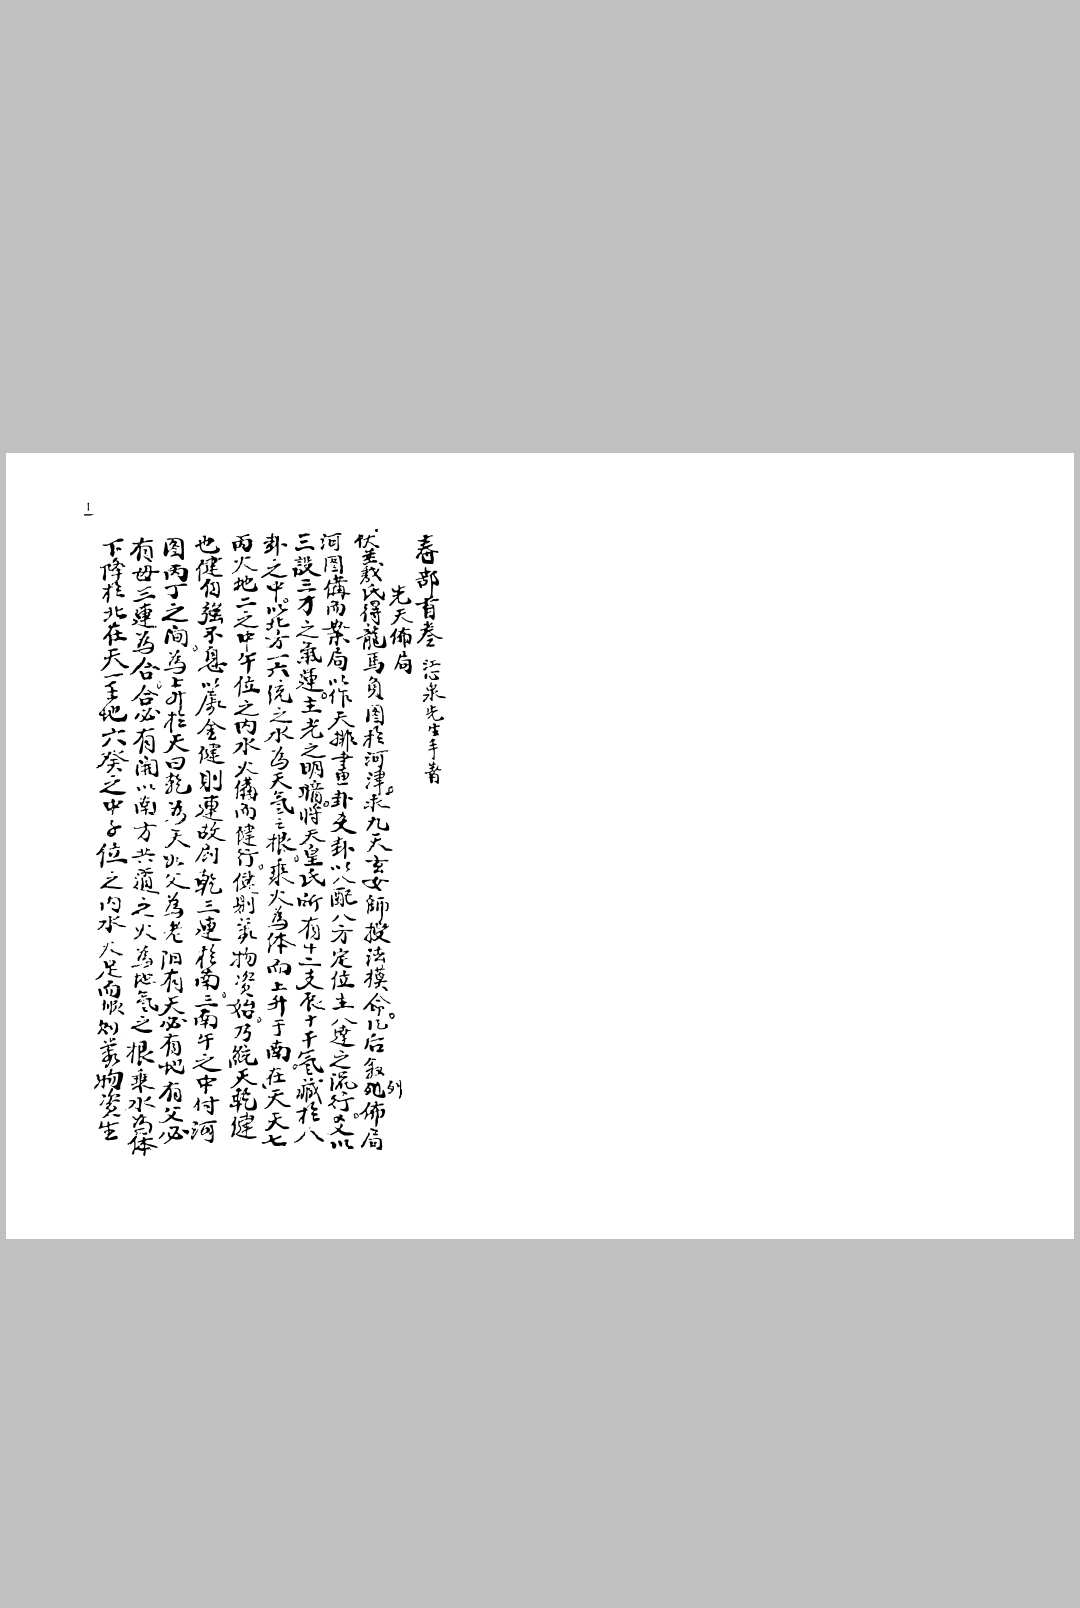 1
春部首卷 泌泉先生手著
先天佈局
伏羲氏得龍馬負图於河津。求九天玄女師授法模命。后叙列佈局
河图備而業局以作天排畫卦爻卦以八配八方定位主八達之流行。又以
三設三才之氣蓮。主光之明暗。將天皇氏所有十二支辰十干氣。藏於八
卦之中。以北方一六统之水為天氣之根。乘火為体而上升于南。在天天七
丙火地二之中午位之内水火備而健行。健則萬物资始。乃統天乾健
也健自强不息。以金健則連故乾三連於南。三南午之中付河
图丙丁之间。為上升於天曰乾為天必父為老阳有天必有地有父必
有母三連為合。合必有開以南方共之火為地氣之根乘水為体
下降於北在天一壬地六癸之中子位之内水火足而順则萬物资生